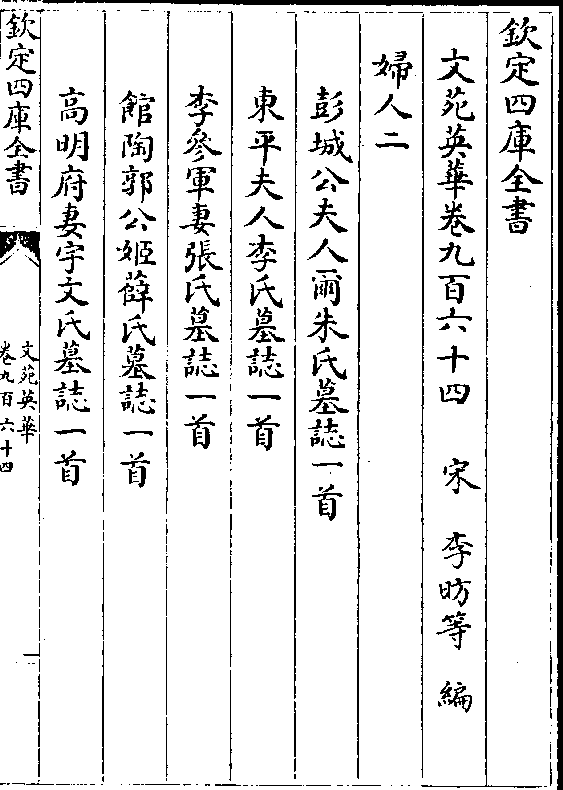 欽定四庫全書
文苑英華卷九百六十四 宋 李昉等 編
婦人二
彭城公夫人爾朱氏墓誌一首
東平夫人李氏墓誌一首
李參軍妻張氏墓誌一首
館陶郭公姬薛氏墓誌一首
高明府妻宇文氏墓誌一首
欽定四庫全書
文苑英華
卷九百六十四
一